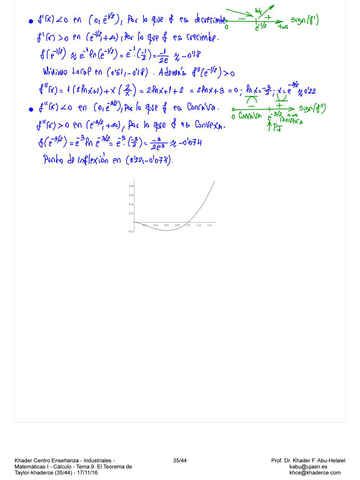 • f'(x) < 0 en (0, e^(-1/2)), por lo que f es decreciente.
f'(x) > 0 en (e^(-1/2), +∞), por lo que f es creciente.
f(e^(-1/2)) ≈ e^-1 ln(e^(-1/2)) = e^-1·(-1/2) = -1/2e ≈ -0'18
Mínimo local en (0'61, -0'18). Además f''(e^(-1/2)) > 0
f''(x) = 1(2lnx+1) + x(2/x) = 2lnx+1+2 = 2lnx+3 = 0; lnx = -3/2; x = e^(-3/2) ≈ 0'22
• f''(x) < 0 en (0, e^(-3/2)), por lo que f es cóncava.
f''(x) > 0 en (e^(-3/2), +∞), por lo que f es convexa.
f(e^(-3/2)) = e^-3 ln e^(-3/2) = e^-3·(-3/2) = -3/2e^3 ≈ -0'074
Punto de inflexión en (0'22, -0'074).
- + sign(f')
0 e^(-1/2) +∞
- + sign(f'')
0 cóncava e^(-3/2) convexa +∞
P.I
0.8
0.6
0.4
0.2
0.2 0.4 0.6 0.8 1.0 1.2 1.4
-0.2
Khader Centro Enseñanza - Industriales -
Matemáticas I - Cálculo - Tema 9. El Teorema de
Taylor-khaderce (35/44) - 17/11/16
35/44
Prof. Dr. Khader F. Abu-Helaiel
kabu@ujaen.es
khce@khaderce.com